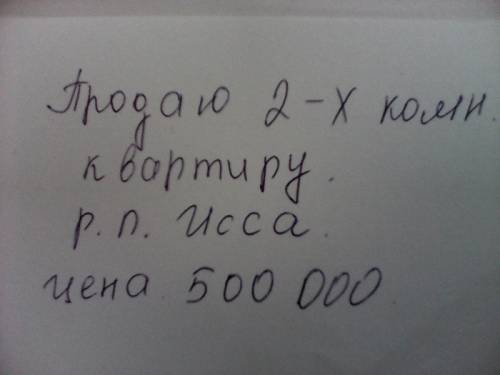 Продаю 2-х комн.
квартиру.
р.п. Исса.
цена 500 000